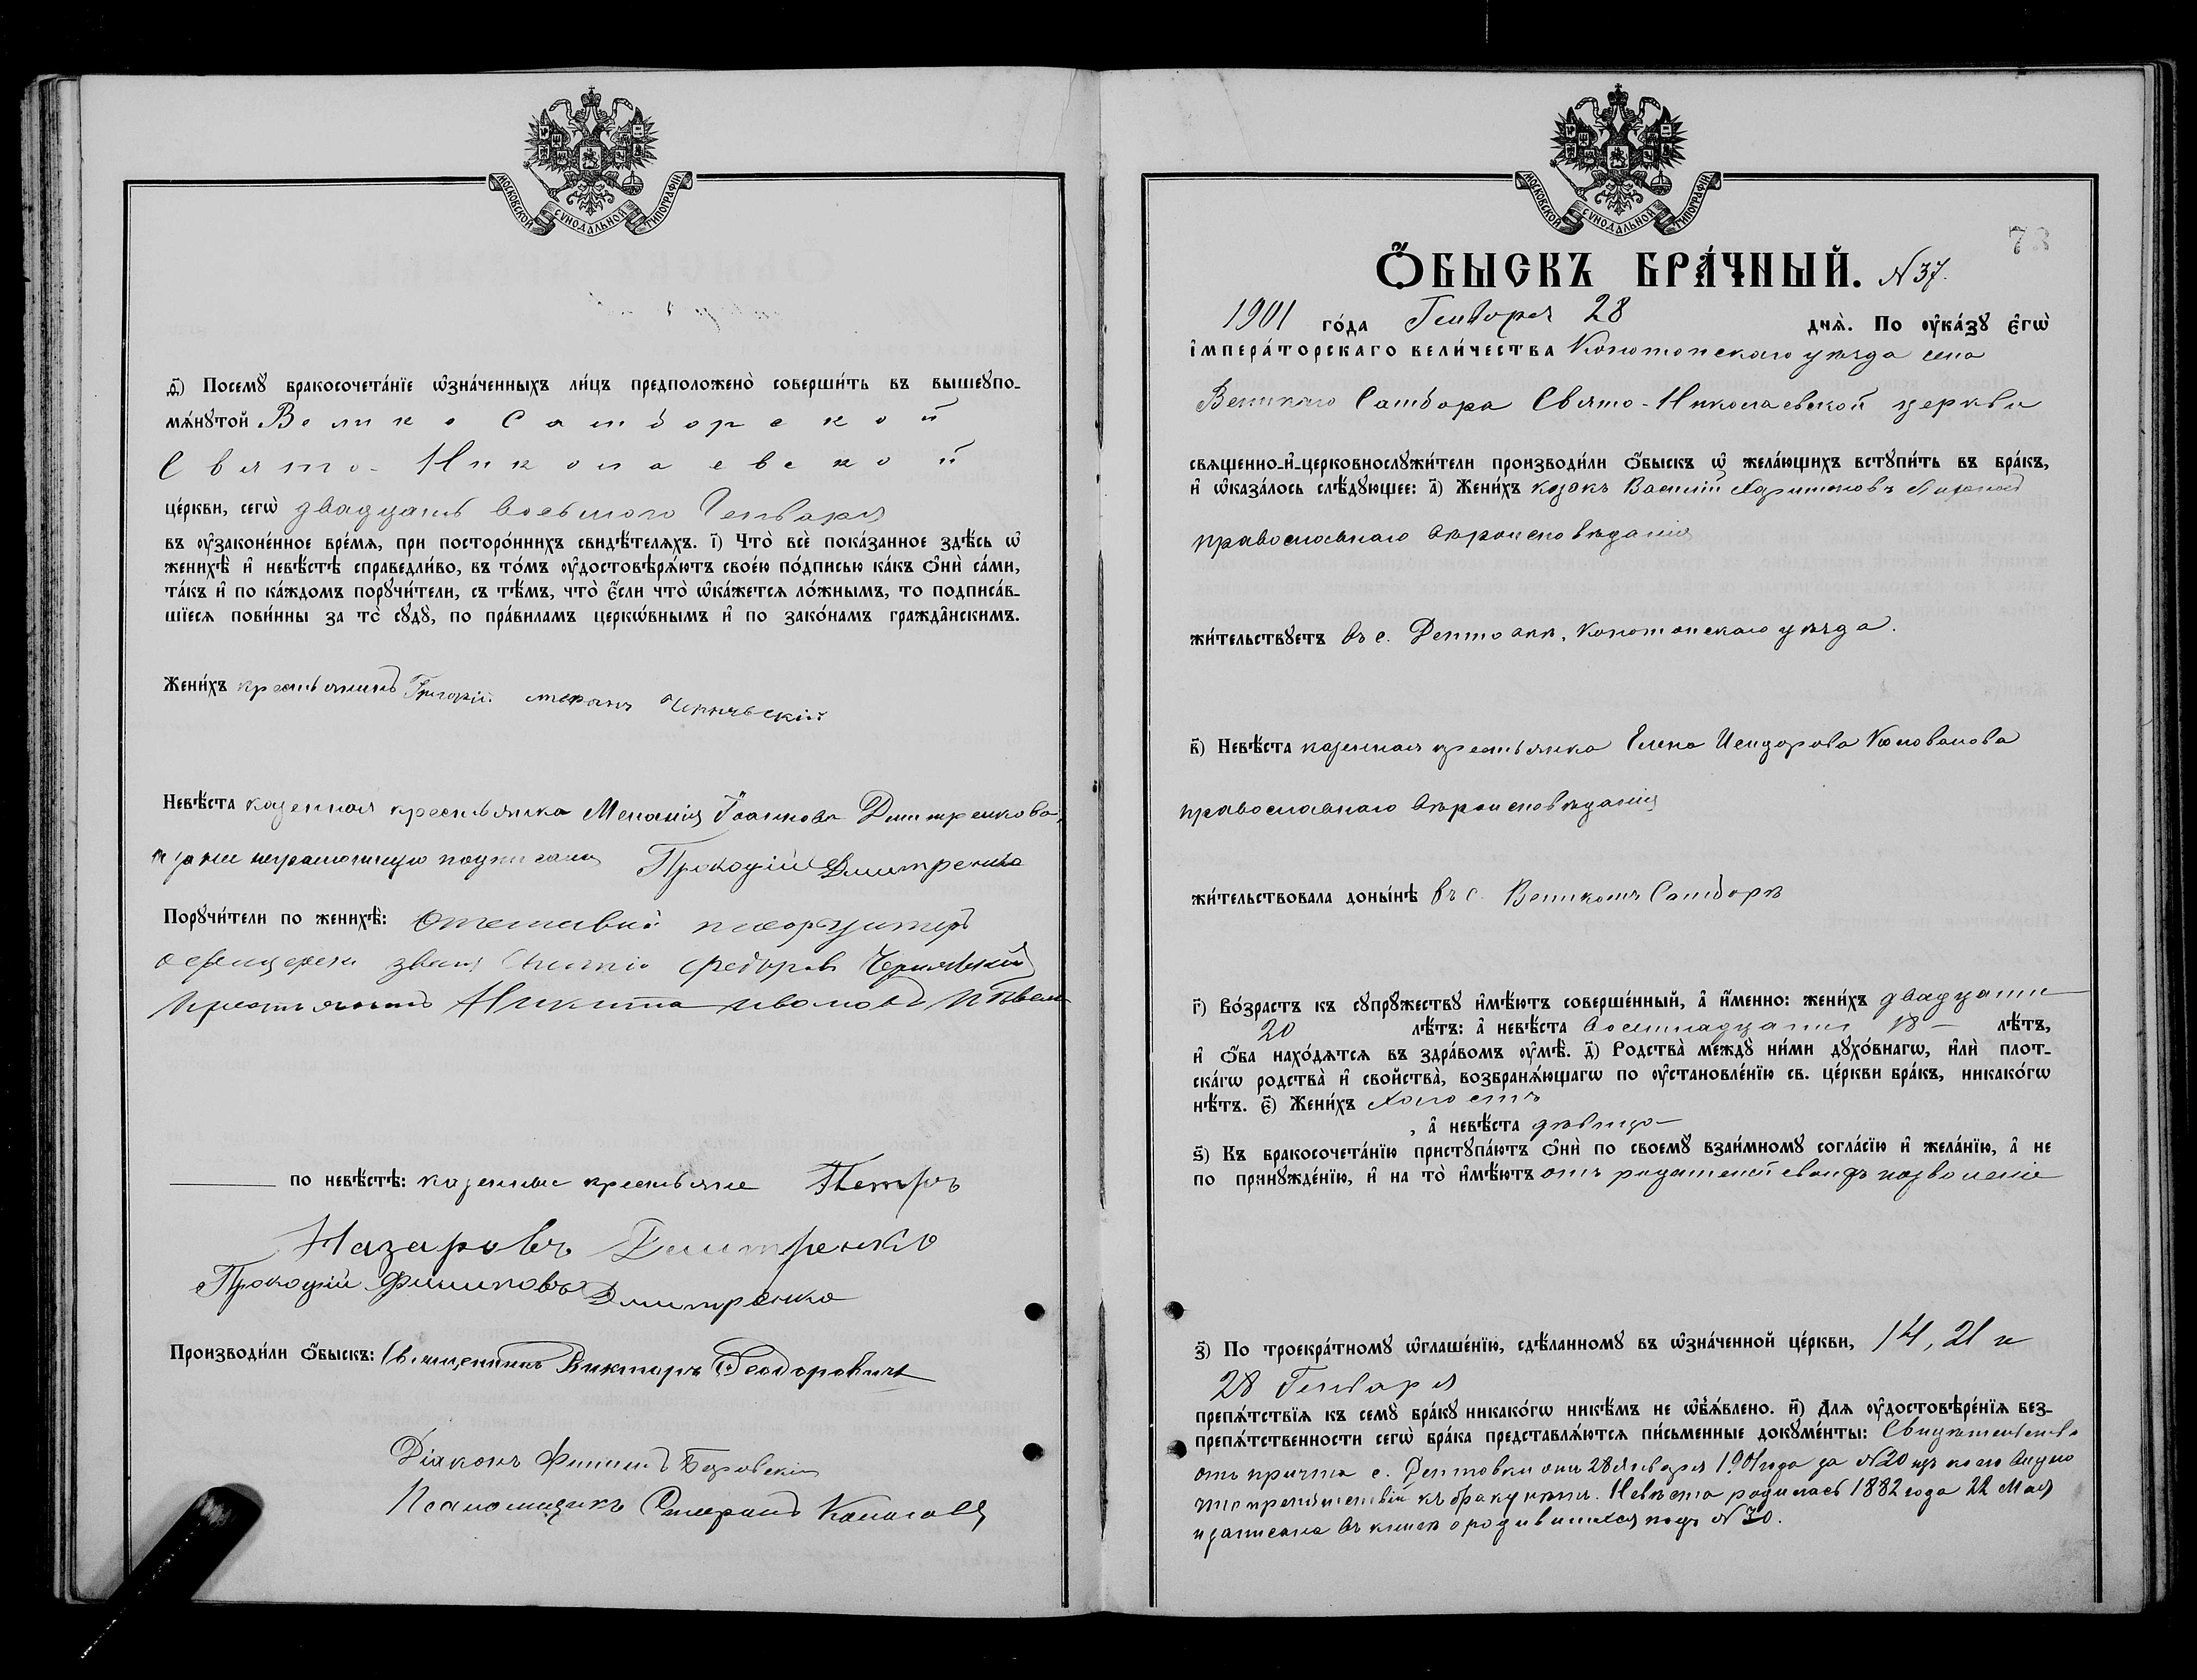 МОСКОВСКОЙ СѴНОДАЛЬНОЙ ТИПОГРАФІИ
ѳ҃) Посемꙋ̀ бракосочета́нїе ѡ҆зна́ченныхъ ли́цъ предположено̀ соверши́ть въ вышеꙋпо-
мѧ́нꙋтой Велико Самборской
Свято-Николаевской
це́ркви, сегѡ̀ двадцать восьмого Генваря
въ ᲂу҆зако́ненное вре́мѧ, при посторо́ннихъ свидѣ́телѧхъ. і҃) Что̀ всѐ пока́занное здѣ́сь ѡ҆
женихѣ̀ и҆ невѣ́стѣ справедли́во, въ то́мъ ᲂу҆достовѣрѧ́ютъ свое́ю по́дписью ка́къ ѻ҆нѝ са́ми,
та́къ и҆ по ка́ждомъ порꙋчи́тели, съ тѣ́мъ, что̀ є҆́сли что̀ ѡ҆ка́жетсѧ ло́жнымъ, то подписа́в-
шїесѧ пови́нны за то̀ сꙋдꙋ̀, по пра́виламъ церкѡ́внымъ и҆ по зако́намъ гражда̑нскимъ.
Жени́хъ крестьянинъ Григорій
Невѣ́ста казенная крестьянка Меланія Іоаннова Дмитренкова,
а за нее неграмотную подписалъ Прокофій Дмитренко
Порꙋчи́тели по женихѣ̀: Отставной
званія Федоровъ Чернявскій
Крестьянинъ Никита Ивановъ
по невѣ́стѣ: казенные крестьяне Петръ
Назаровъ Дмитренко
Прокофій Филиповъ Дмитренко
Производи́ли ѻ҆́быскъ: Священникъ Викторъ Ѳеодоровичъ
Діаконъ Филипъ Боровскій
Псаломщикъ
МОСКОВСКОЙ СѴНОДАЛЬНОЙ ТИПОГРАФІИ
73
Ѻ҆́БЫСКЪ БРА́ЧНЫЙ. N 37.
1901 го́да Генваря 28 днѧ̀. По ᲂу҆ка́зꙋ є҆гѡ̀
і҆мпера́торскаго вели́чества Конотопскаго уѣзда села
Великаго Самбора Свято-Николаевской церкви
свѧщенно-и҆-церковнослꙋжи́тели производи́ли ѻ҆́быскъ ѡ҆ жела́ющихъ встꙋпи́ть въ бра́къ,
и҆ ѡ҆каза́лось слѣ́дꙋющее: а҃) Жени́хъ козакъ Василій Харитоновъ
православнаго вѣроисповѣданія
жи́тельствꙋетъ въ с. Дептовкѣ, Конотопскаго уѣзда.
в҃) Невѣ́ста казенная крестьянка Елена Исидорова Коловакова
православнаго вѣроисповѣданія
жи́тельствовала доны́нѣ въ с. Великомъ Самборѣ
г҃) Во́зрастъ къ сꙋпрꙋ́жествꙋ и҆мѣ́ютъ соверше́нный, а҆ и҆́менно: жени́хъ двадцати
20 лѣ́тъ: а҆ невѣ́ста восемнадцати 18 — лѣ́тъ,
и҆ ѻ҆́ба нахо́дѧтсѧ въ здра́вомъ ᲂу҆мѣ̀. д҃) Родства̀ междꙋ̀ ни́ми дꙋхо́внагѡ, и҆лѝ плот-
ска́гѡ родства̀ и҆ свойства̀, возбранѧ́ющагѡ по ᲂу҆становле́нїю св. це́ркви бра́къ, никако́гѡ
нѣ́тъ. є҃) Жени́хъ холостъ
, а҆ невѣ́ста дѣвица
ѕ҃) Къ бракосочета́нїю пристꙋпа́ютъ ѻ҆нѝ по своемꙋ̀ взаи́мномꙋ согла́сїю и҆ жела́нїю, а҆ не
по принꙋжде́нїю, и҆ на то̀ и҆мѣ́ютъ отъ родителей своихъ позволеніе
з҃) По троекра́тномꙋ ѡ҆глаше́нїю, сдѣ́ланномꙋ въ ѡ҆зна́ченной це́ркви, 14, 21 и
28 Генваря
препѧ́тствїѧ къ семꙋ̀ бра́кꙋ никако́гѡ никѣ́мъ не ѡ҆б̾ѧ́влено. и҃) Длѧ ᲂу҆достовѣре́нїѧ без-
препѧ́тственности сегѡ̀ бра́ка представлѧ́ютсѧ пи́сьменные докꙋме́нты: Свидѣтельство
отъ причта с. Дептовки отъ 28 января 1901 года за N 20 изъ коего видно
что препятствій къ браку нѣтъ. Невѣста родилась 1882 года 22 Мая
и записана въ книгѣ о родившихся подъ N 30.